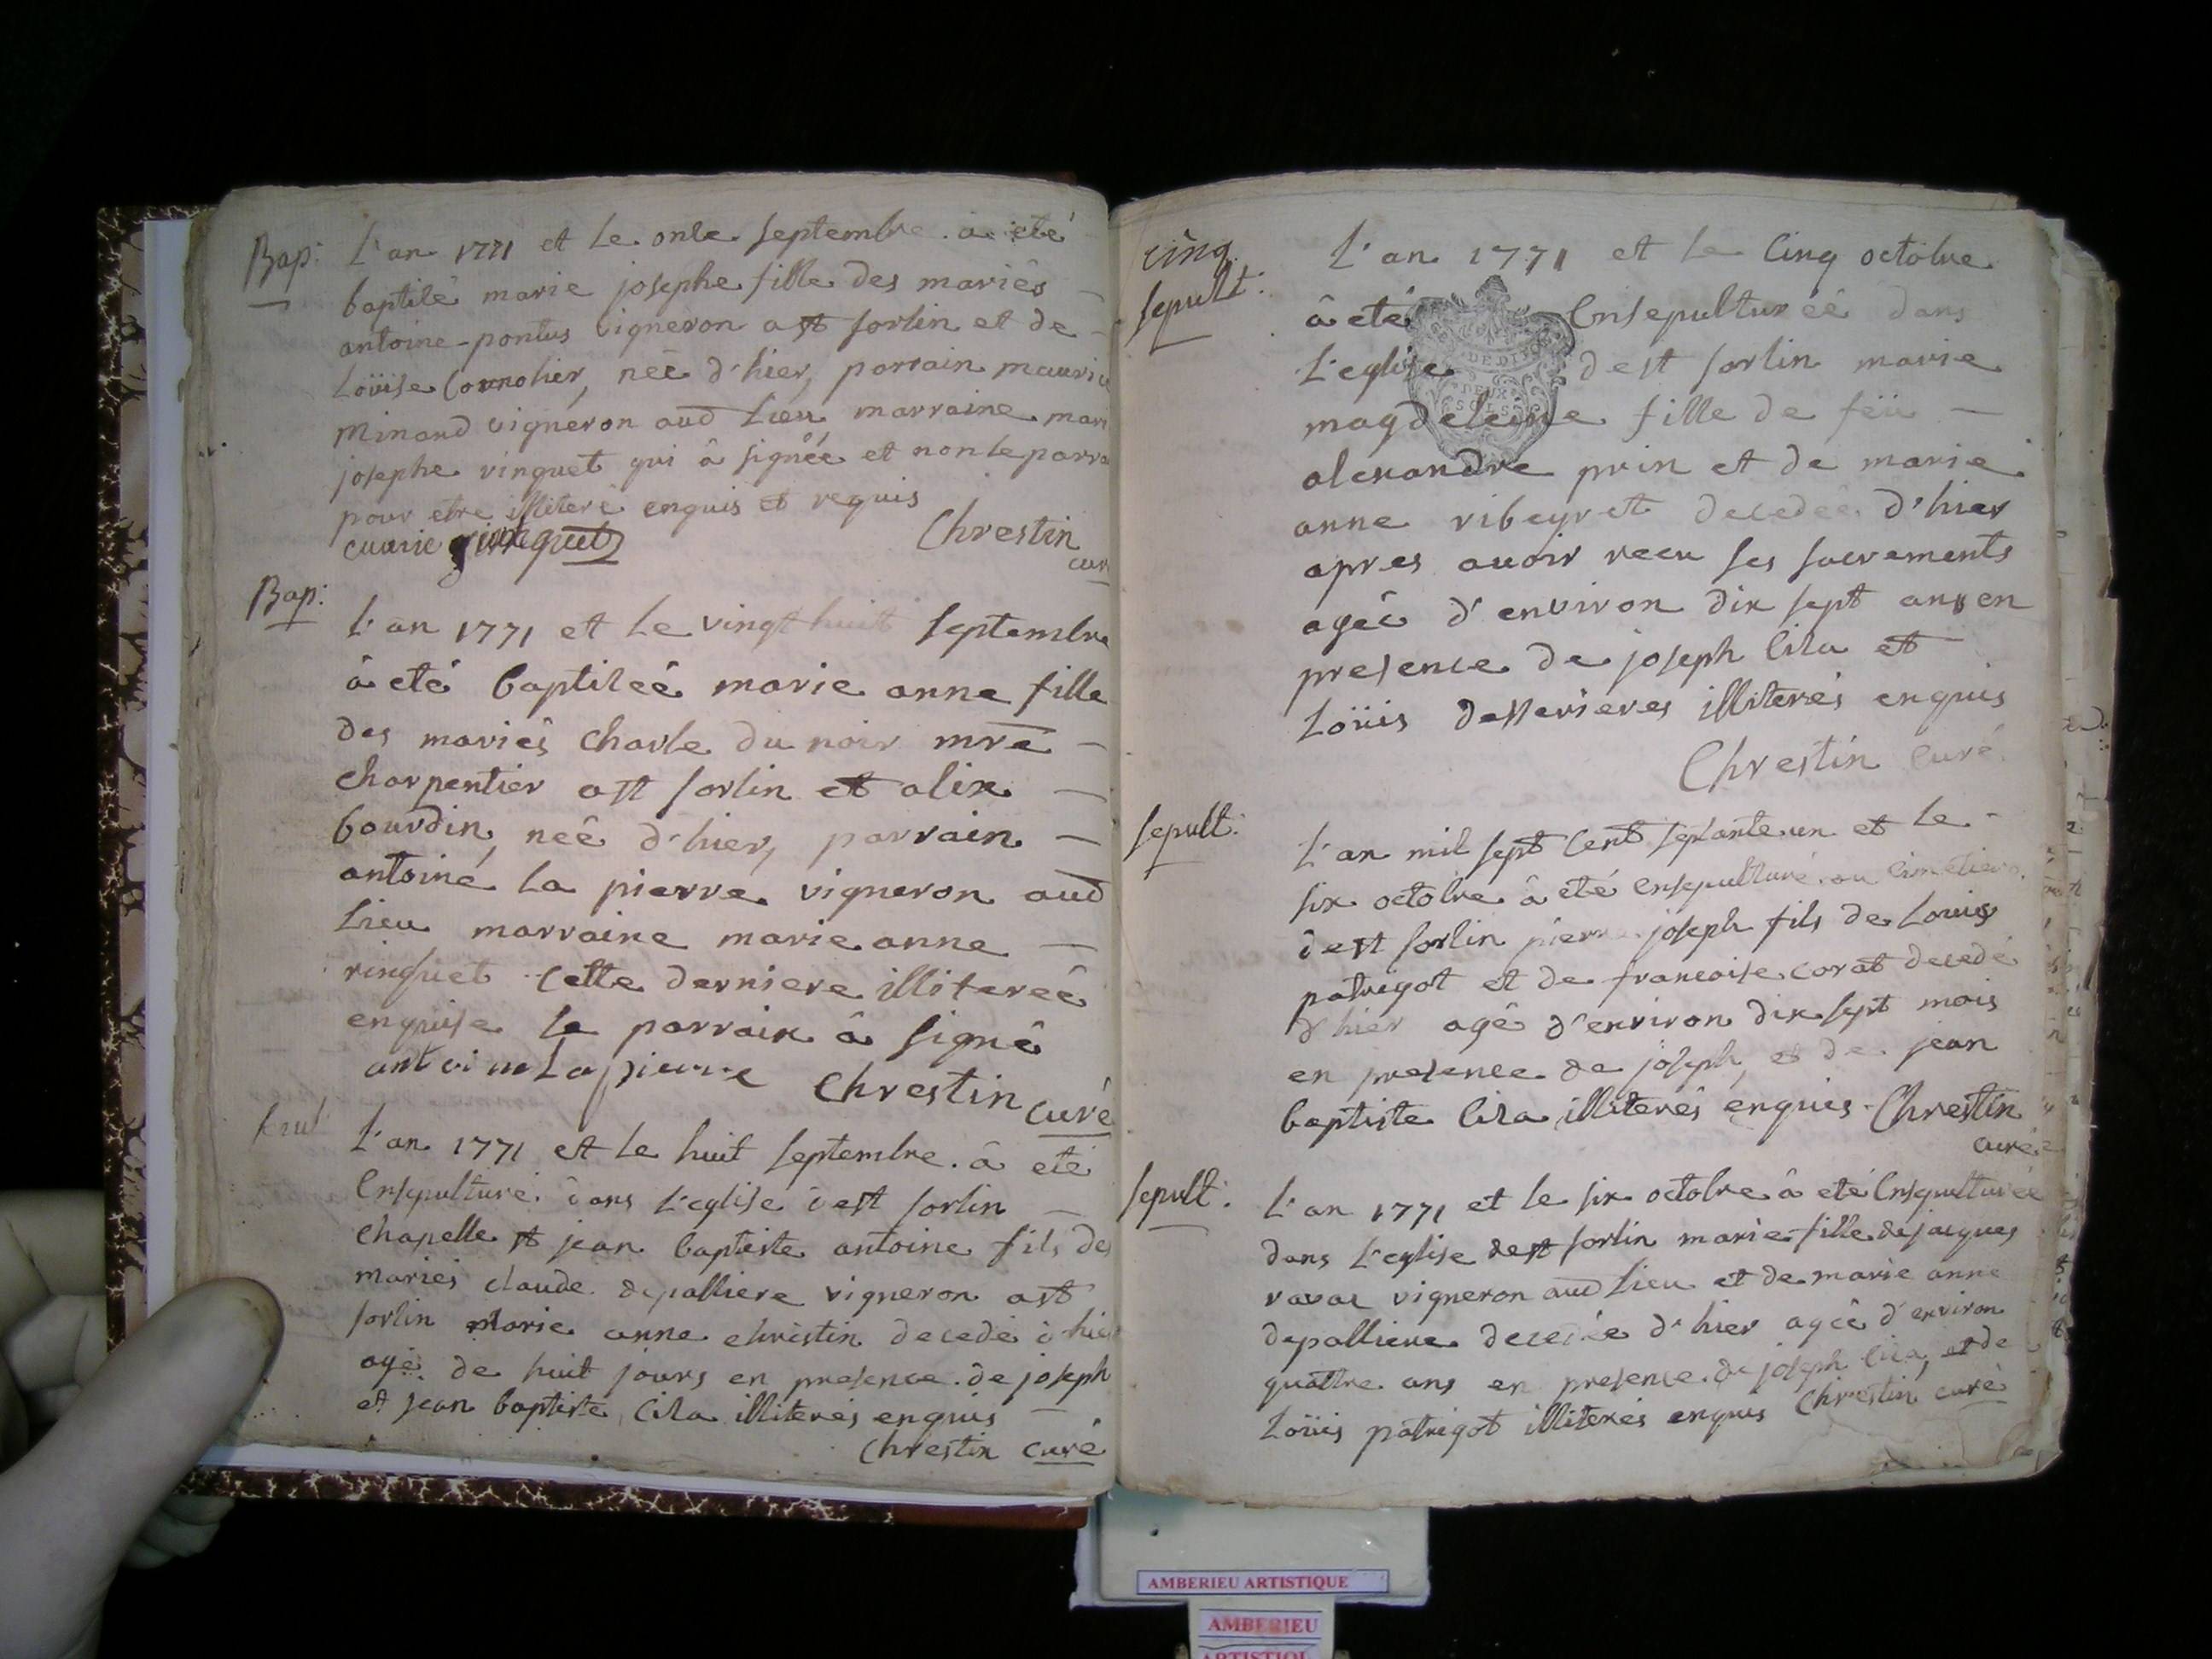 Bap:
L'an 1771 et le onze septembre a été
baptisé marie josephe fille des mariés
antoine-pontus vigneron a st sorlin et de
Loüise Connohier, née d'hier, parrain mauric
minand vigneron aud Lieu, marraine mari
josephe vinguet qui â signéé et non le parra
pour etre illiteré enquis et requis
Chrestin
cur
Bap:
L'an 1771 et le vingt huit septembre
â eté baptiseé marie anne fille
des mariés charle du noir mre
charpentier a st sorlin et alix
bourdin, neê d'hier, parrain
antoine la pierre vigneron aud
Lieu marraine marie anne
ringuet cette derniere illitereé
enquise le parrain â signé
antoine Lapierre Chrestin curé
L'an 1771 et le huit septembre. â eté
Ensepulturé dans L'eglise de st sorlin
chapelle st jean baptiste antoine fils des
mariés claude depalliere vigneron a st
sorlin marie anne chrestin decedé d'hier
agé de huit jours en presence de joseph
et jean baptiste Ciza illiterés enquis
Chrestin curé
cinq.
sepult:
L'an 1771 et le Cinq octobre
â eté Ensepulturéé dans
L'eglise de st sorlin marie
magdeleine fille de feü
alexandre prin et de marie
anne ribeyret decedeé d'hier
apres avoir recu ses sacrements
agéé d'environ dix sept ans en
presence de joseph Ciza et
Loüis desserieres illiterés enquis
Chrestin Curé
DEUX
SOLS
sepult:
L'an mil sept Cent septante un et le
six octobre â eté ensepulturé au Cimetiere
de st sorlin pierre joseph fils de Louis
patrigot et de francoise corat decedé
d'hier agé d'environ dix sept mois
en presence de joseph, et de jean
baptiste Ciza illiterés enquis. Chrestin
curé
sepult:
L'an 1771 et le six octobre â eté Ensepulturéé
dans L'eglise de st sorlin marie fille de jacques
ravas vigneron aud Lieu et de marie anne
depalliere decedée d'hier agéé d'environ
quattre ans en presence de joseph Ciza, et de
Loüis patrigot illiterés enquis Chrestin curé
AMBERIEU ARTISTIQUE
AMBERIEU
ARTISTIQU